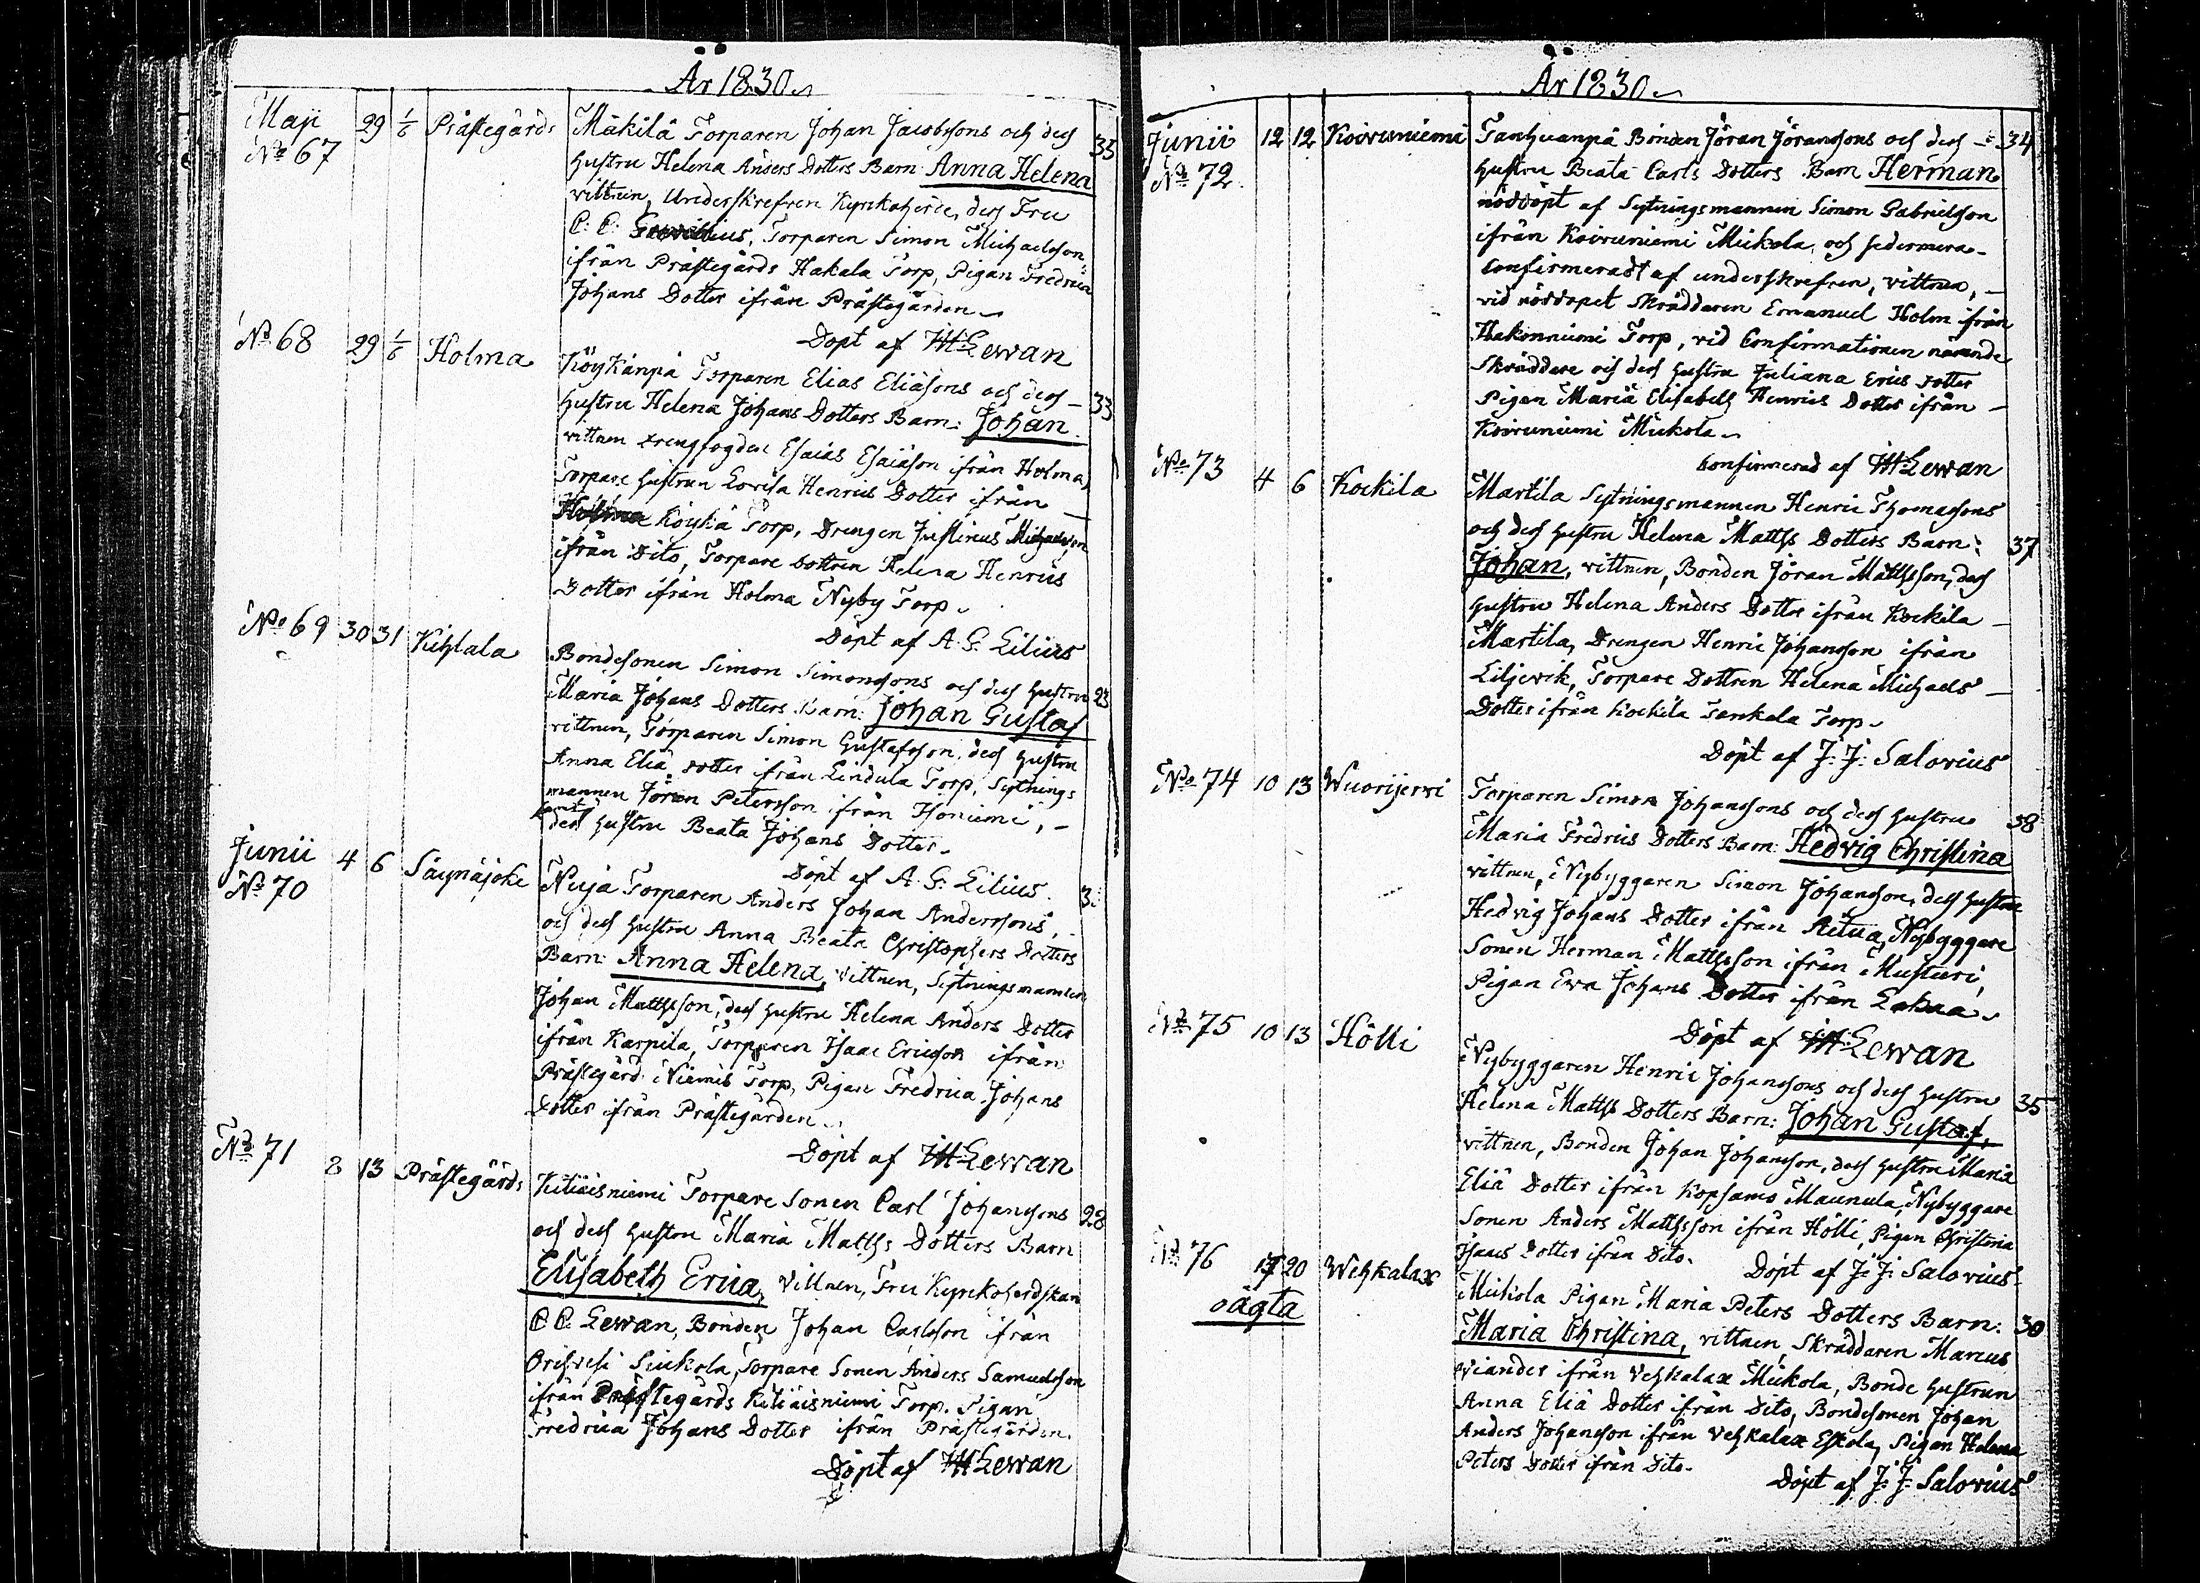 År 1830
Maji 29 1/6 Prästegårds Mäkilä Torparen Johan Jacobssons och dess 33
No 67 hustru Helena Anders Dotters Barn Anna Helena
vittnen, Underskrefven Kyrkoherde, dess Fru
C: C: Torparen Simon Michaelsson
ifrån Prästegårds Hakala Torp, Pigan Fredrica
Johans Dotter ifrån Prästegården
Döpt af Lewan
No 68 29 1/6 Holma Köykänpä Torparen Elias Eliäsons och dess 33
hustru Helena Johans Dotters Barn: Johan
vittnen drengfogden Esaias Esaiäson ifrån Holma,
Torpare hustrun Lovisa Henrics Dotter ifrån
Köykä Torp, Drengen Justinus Michaelsson
ifrån Dito, Torpare dottren Helena Henrics
Dotter ifrån Holma Nyby Torp.
Döpt af A. G. Lilius
No 69 30 31 Kihlala Bondesonen Simon Simonssons och dess hustru 23
Maria Johans Dotters Barn: Johan Gustaf
vittnen, Torparen Simon Gustafsson, dess hustru
Anna Eliä dotter ifrån Lindula Torp, Sytnings
mannen Jöran Petersson ifrån Honiemi,
samt dess hustru Beata Johans Dotter.
Döpt af A. G. Lilius.
Junii 4 6 Säynäjoki Nuja Torparen Anders Johan Anderssons,
No 70 och dess hustru Anna Beata Christophers Dotters
Barn: Anna Helena, vittnen, Sytningsmannen
Johan Mattsson, dess hustru Helena Anders Dotter
ifrån Karpila, Torparen Isaac Ericsson ifrån
Prästegård Niemis Torp, Pigan Fredrica Johans
Dotter ifrån Prästegården
Döpt af Lewan
No 71 8 13 Prästegårds Kitiäisniemi Torpare Sonen Carl Johanssons 28
och dess hustru Maria Matths Dotters Barn
Elisabeth Erica, vittnen, Fru Kyrkoherdskan
C C. Lewan, Bonden Johan Carlsson ifrån
Orisvesi Siukola, Torpare Sonen Anders Samuelsson
ifrån Prästegårds Kitiäisniemi Torp. Pigan
Fredrica Johans Dotter ifrån Prästegården.
Döpt af Lewan
År 1830
Junii 12 12 Koivuniemi Tanhuanpä Bonden Jöran Jöranssons och dess 34
No 72. hustru Beata Carls Dotters Barn Herman
nöddöpt af Sytningsmannen Simon Gabrielsson
ifrån Koivuniemi Mickola och sedermera
Confirmeradt af underskrefven, vittnen,
vid nöddopet skräddaren Emanuel Holm ifrån
Hakonniemi Torp, vid Confirmationen nämnde
Skräddare och dess hustru Juliana Erics dotter
Pigan Maria Elisabeth Henrics Dotter ifrån
Koivuniemi Mickola
Confirmerad af Lewan
No 73 4 6 Kockila Martila Sytningsmannen Henric Thomassons
och dess hustru Helena Matths Dotters Barn: 37
Johan, vittnen, Bonden Jöran Mattsson, dess
hustru Helena Anders Dotter ifrån Kockila
Martila, Drengen Henric Johansson ifrån
Liljevik, Torpare Dottren Helena Michaels
Dotter ifrån Kockila Tankala Torp
Döpt af J: J: Salovius
No 74 10 13 Wuorijervi Torparen Simon Johanssons och dess hustru 38
Maria Fredrics Dotters Barn: Hedvig Christina
vittnen, Nybyggaren Simon Johansson, dess hustru
Hedvig Johans Dotter ifrån Aetua, Nybyggare
Sonen Herman Mattsson ifrån Musturi,
Pigan Eva Johans Dotter ifrån
Döpt af Lewan
No 75 10 13 Hölli Nybyggaren Henric Johanssons och dess hustru 35
Helena Matths Dotters Barn: Johan Gustaf,
vittnen, Bonden Johan Johansson, dess hustru Maria
Eliä Dotter ifrån Kopsamo Maunula, Nybyggare
Sonen Anders Mattsson ifrån Hölli, Pigan Christina
Isaacs Dotter ifrån Dito. Döpt af J: J: Salovius
No 76 20 Wehkalax Mickola Pigan Maria Peters Dotters Barn: 30
oägta Maria Christina, vittnen, Skräddaren Marcus
Viander ifrån Vehkalax Mickola, Bonde hustrun
Anna Eliä Dotter ifrån Dito, Bondesonen Johan
Anders Johansson ifrån Vehkalax Eskola, Pigan Helena
Peters Dotter ifrån Dito.
Döpt af J: J: Salovius